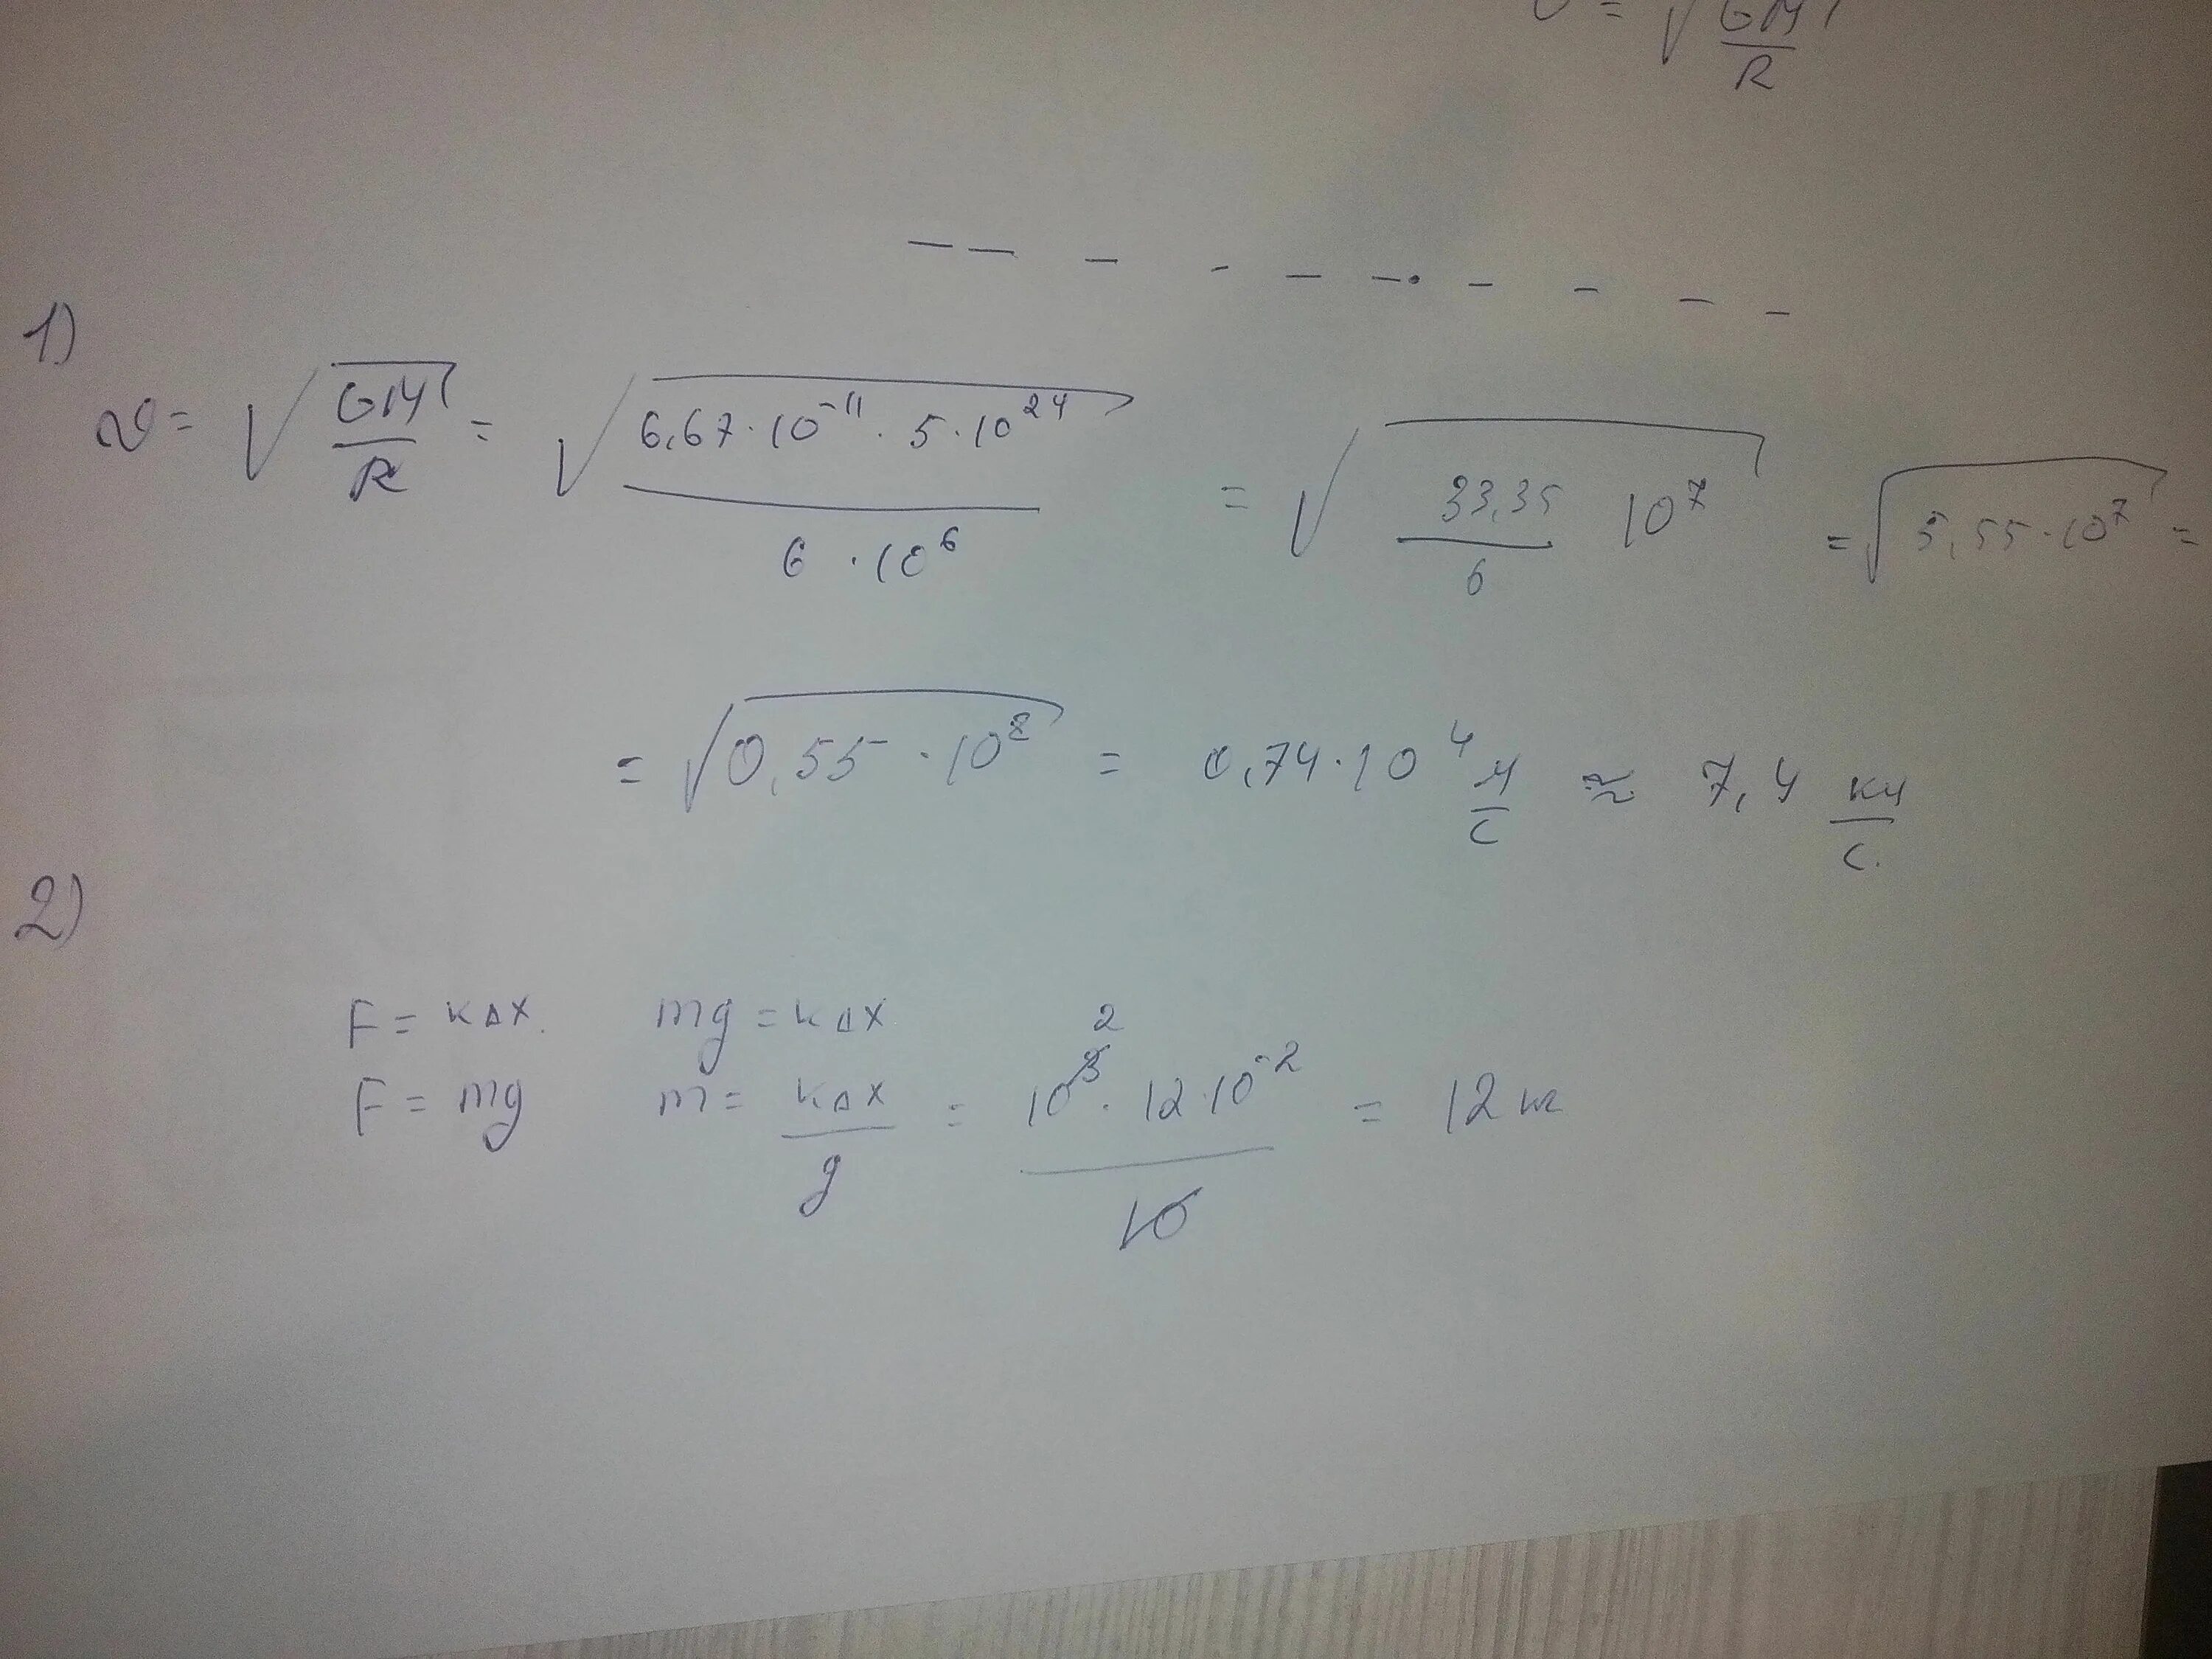 υ = √(GM/R)
-- - - - -. - - - -
1)
υ = √(GM/R) = √(6,67·10⁻¹¹ · 5·10²⁴ / 6·10⁶) = √(33,35/6 10⁷) = √(5,55·10⁷) =
= √(0,55·10⁸) = 0,74·10⁴ м/с ≈ 7,4 км/с.
2)
F = кΔx. mg = кΔx
F = mg m = кΔx/g = 10³ · 12·10⁻²/10 = 12 кг
2